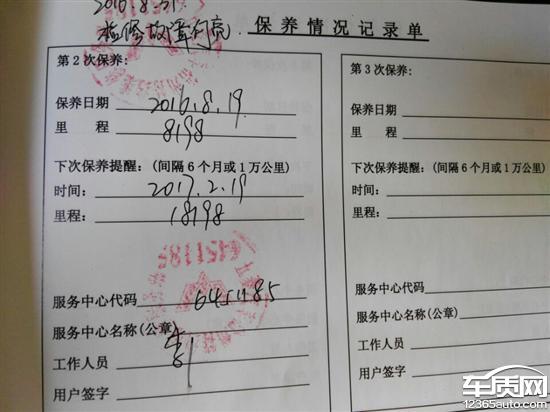 2016.8.31
检修故障灯亮
保养情况记录单
第2次保养:
保养日期 2016.8.19
里 程 8198
下次保养提醒: (间隔6个月或1万公里)
时间: 2017.2.19
里程: 18198
服务中心代码 6451185
服务中心名称(公章)
工作人员
用户签字
第3次保养:
保养日期
里 程
下次保养提醒:(间隔6
时间:
里程:
服务中心代码
服务中心名称(公章)
工作人员
用户签字
6451185
车质网
12365auto.com